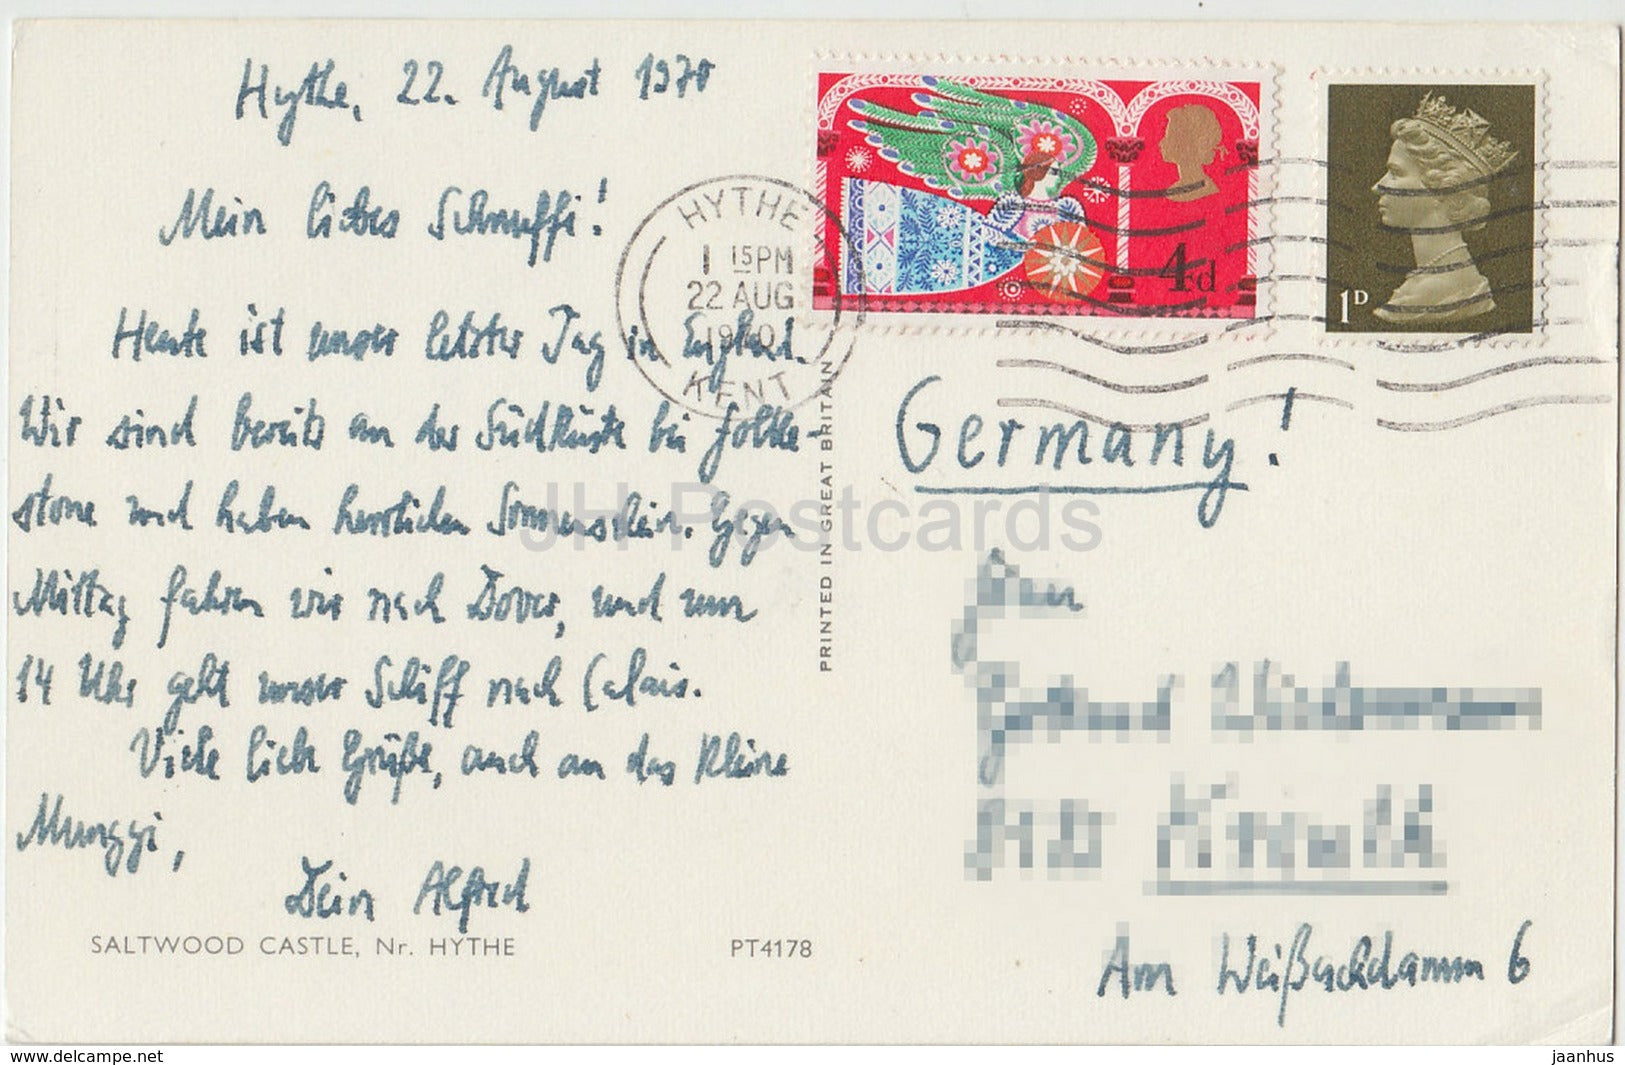 Hythe, 22. August 1970
Mein liebes Schnuffi!
Heute ist unser letzter Tag in England.
Wir sind bereits an der Südküste bei Folke-
stone und haben herrlichen Sonnenschein. Gegen
Mittag fahren wir nach Dover, und um
14 Uhr geht unser Schiff nach Calais.
Viele liebe Grüße, auch an das kleine
Munggi,
Dein Alfred
SALTWOOD CASTLE, Nr. HYTHE
PT4178
PRINTED IN GREAT BRITAIN
HYTHE
1 15PM
22 AUG
1970
KENT
4d
1D
Germany!
Am Weißachdamm 6
JH Postcards
www.delcampe.net
jaanhus